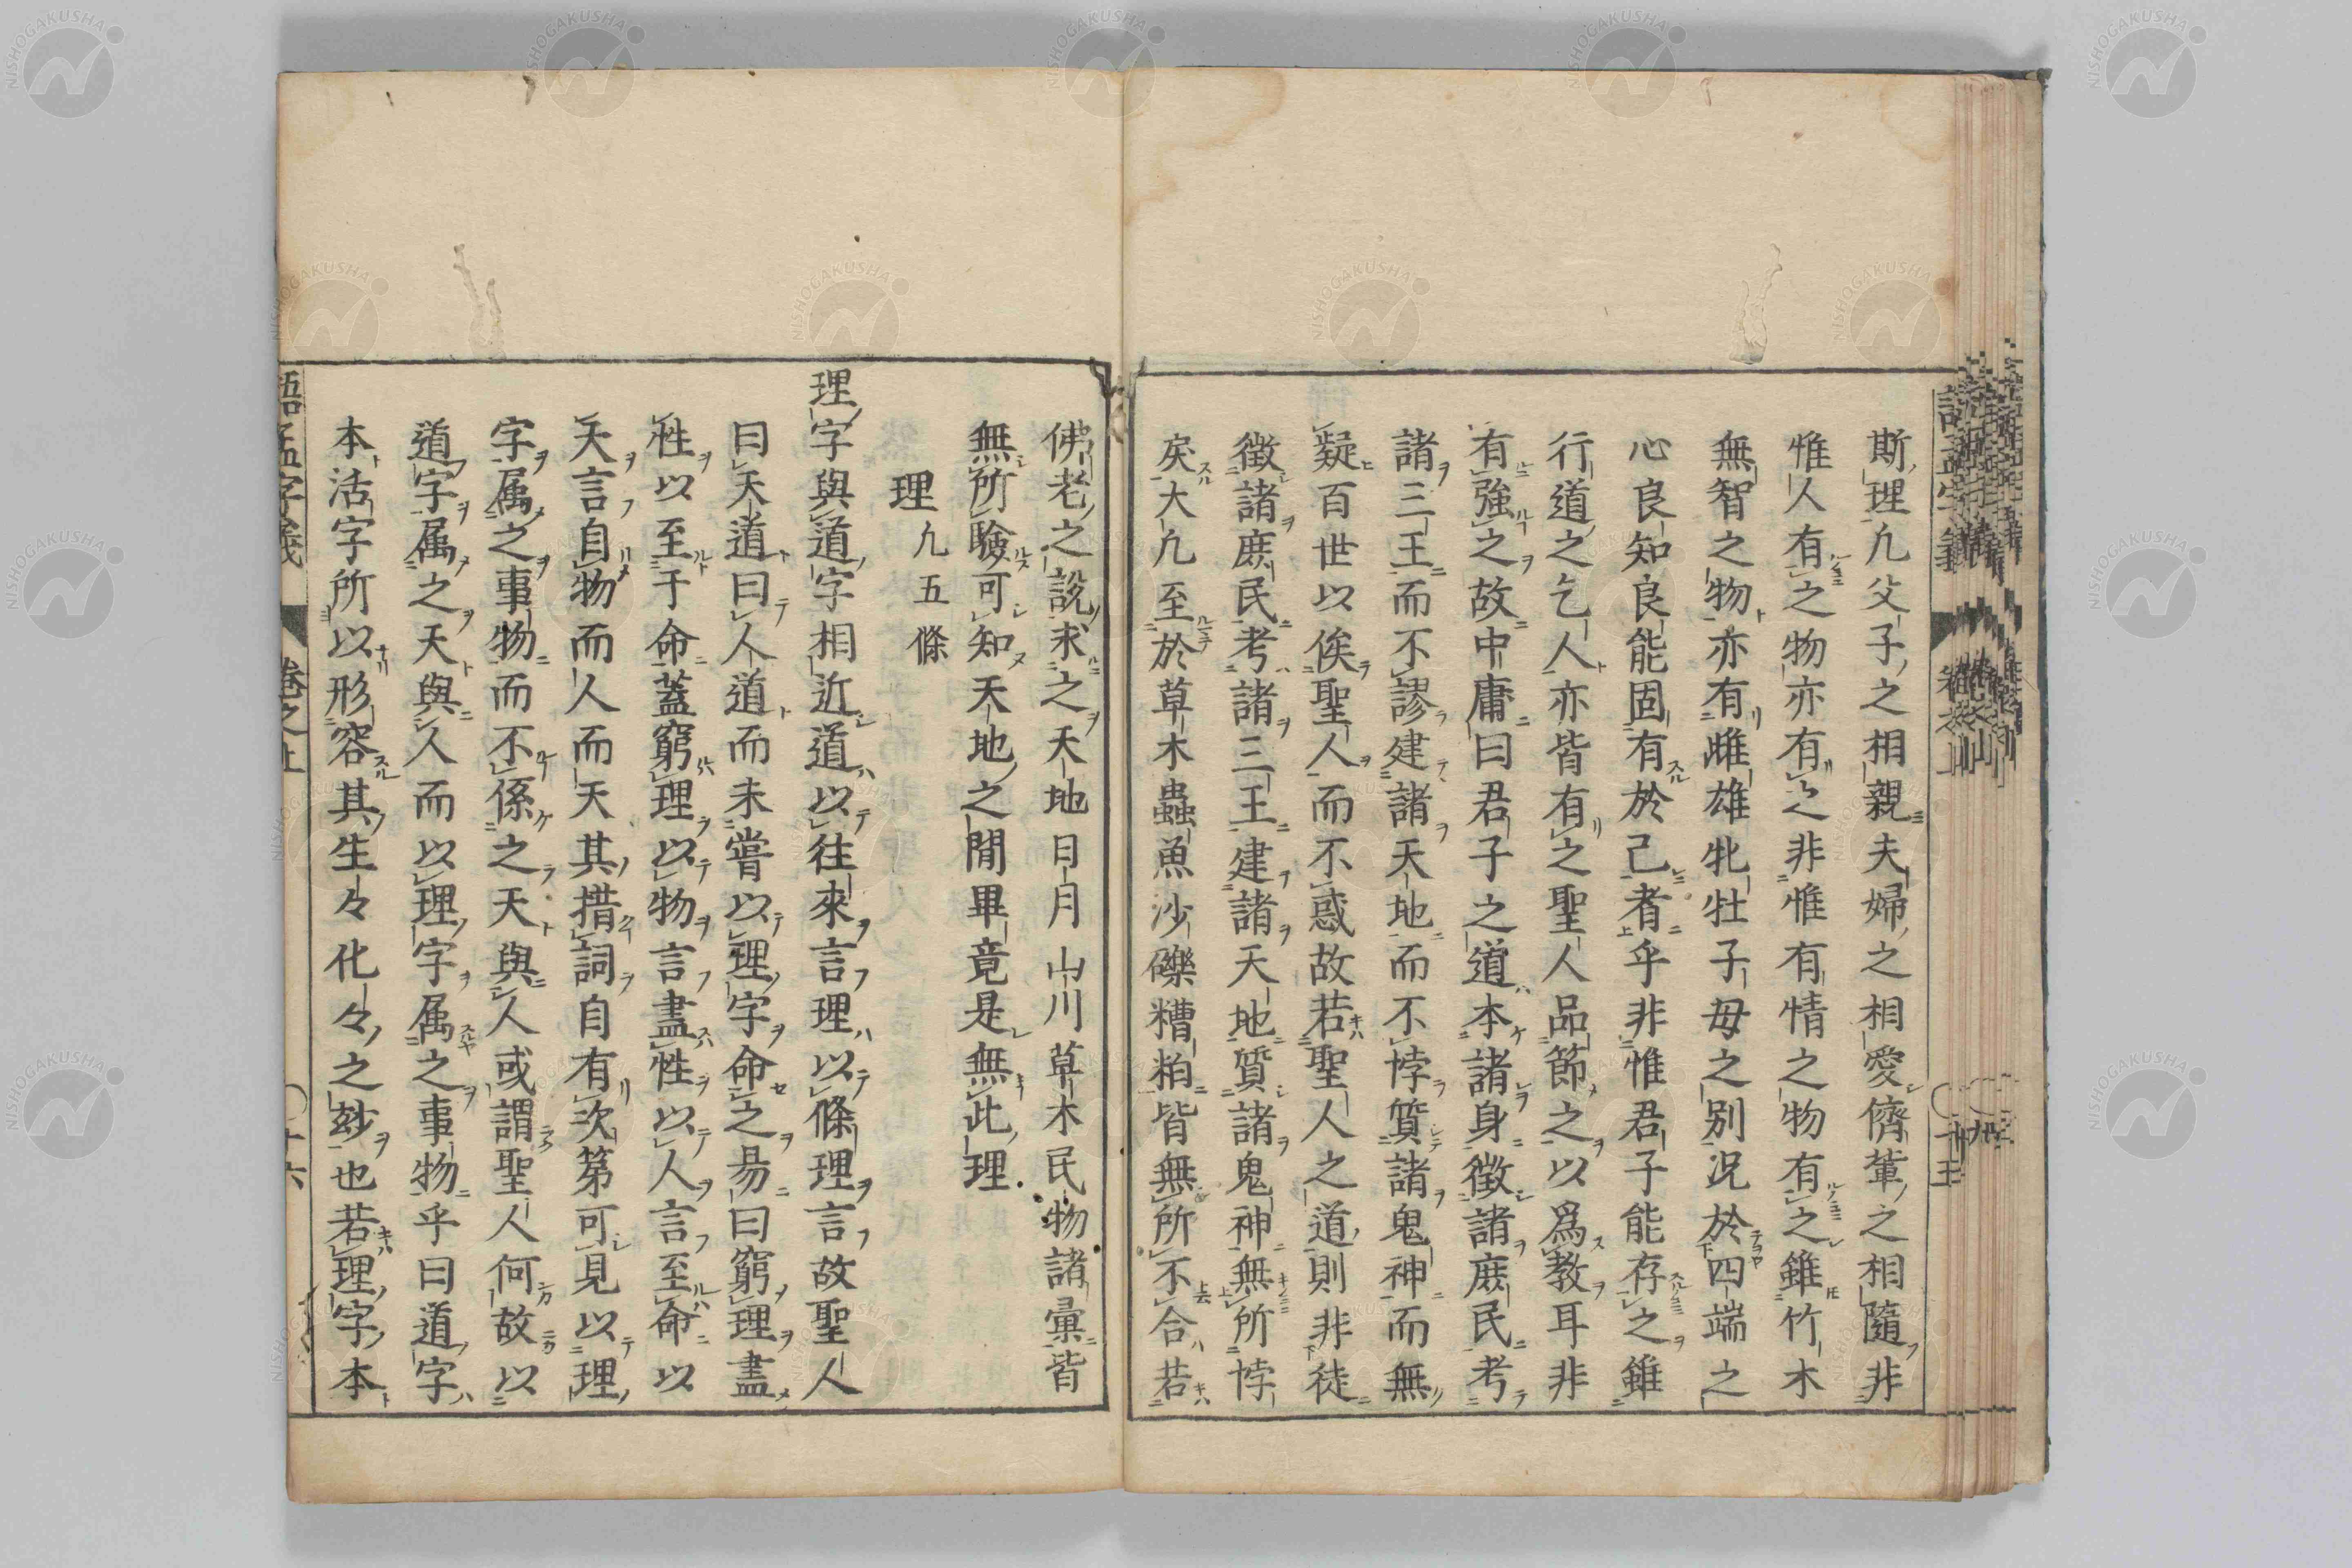 斯理凢父子之相親夫婦之相愛儕軰之相隨非
惟人有之物亦有之非惟有情之物有之雖竹木
無智之物亦有雌雄牝牡子母之别况於四端之
心良知良能固有於己者乎非惟君子能存之雖
行道之乞人亦皆有之聖人品節之以爲教耳非
有強之故中庸曰君子之道本諸身徴諸庶民考
諸三王而不謬建諸天地而不悖質諸鬼神而無
疑百世以俟聖人而不惑故若聖人之道則非徒
徴諸庶民考諸三王建諸天地質諸鬼神無所悖
戾大凢至於草木蟲魚沙礫糟粕皆無所不合若
佛老之說求之天地日月山川草木民物諸彙皆
無所驗可知天地之閒畢竟是無此理
理 凢五條
理字與道字相近道以往來言理以條理言故聖人
曰天道曰人道而未嘗以理字命之易曰窮理盡
性以至于命蓋窮理以物言盡性以人言至命以
天言自物而人而天其措詞自有次第可見以理
字属之事物而不係之天與人或謂聖人何故以
道字属之天與人而以理字属之事物乎曰道字
本活字所以形容其生々化々之玅也若理字本
語孟字義 卷之上 〇十六